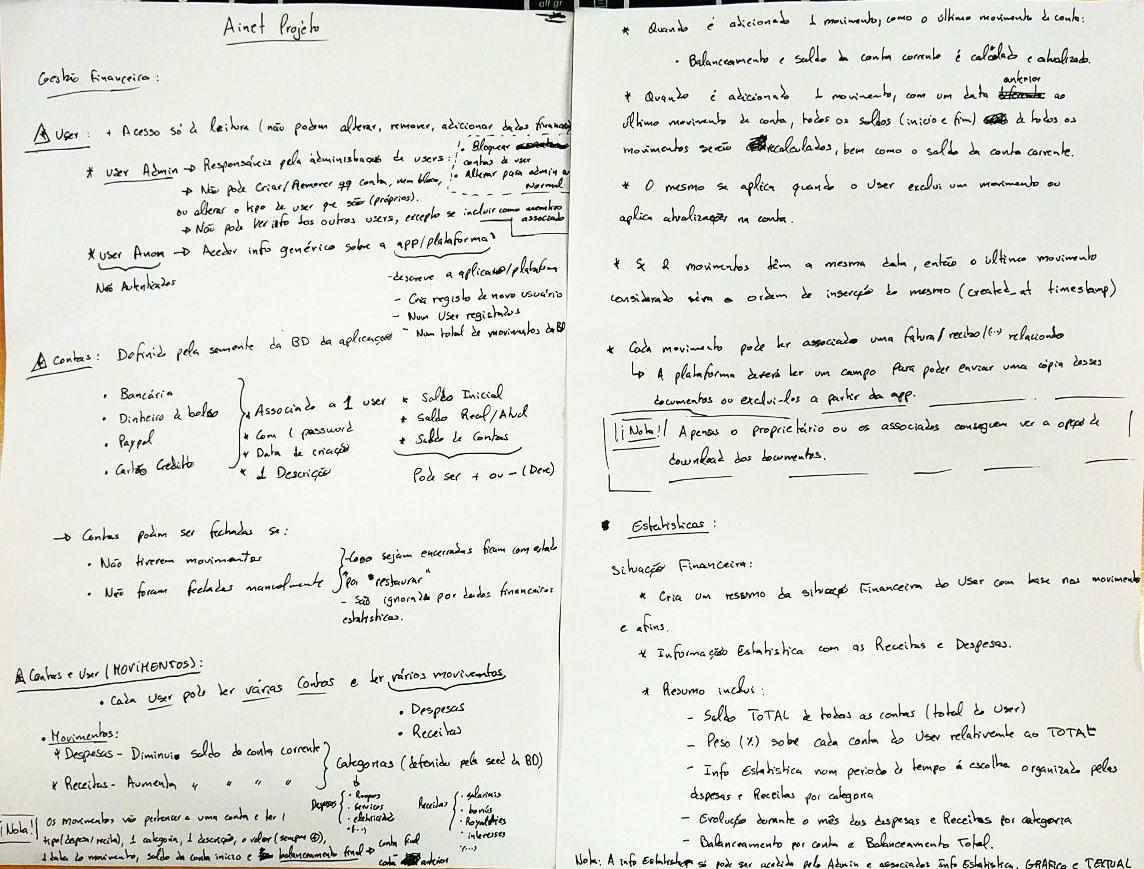 alt gr
Ainet Projeto
Gestão Financeira:
User: + Acesso só à leitura (não podem alterar, remover, adicionar dados financei
* User Admin → Responsáveis pela administração de users:
• Bloquear
contas de user
• Alterar para admin a
Normal
→ Não pode Criar/Remover qq conta, nem bloq,
ou alterar o tipo de user que são (próprios).
→ Não pode ver info dos outros users, excepto se incluir como membro
associado
* User Anom → Aceder info genérico sobre a app/plataforma
Não Autenticados
- descreve a aplicação/plataforma
- Cria registo de novo usuário
- Num User registados
- Num total de movimentos da BD
Contas: Definido pela semente da BD da aplicação
• Bancária
• Dinheiro de bolso
• Paypal
• Cartão Crédito
* Associado a 1 user
* Com 1 password
* Data de criação
* 1 Descrição
* Saldo Inicial
* Saldo Real/Atual
* Saldo de Contas
Pode ser + ou - (Deve)
→ Contas podem ser fechadas se:
• Não tiverem movimentos
• Não foram fechadas manualmente
- Caso sejam encerradas ficam com estado
pa "restaurar"
- São ignorado por dados financeiros
estatisticas.
Contas e User (MOVIMENTOS):
• Cada User pode ter várias Contas e ter vários movimentos
• Despesas
• Receitas
• Movimentos:
* Despesas - Diminui saldo da conta corrente
* Receitas - Aumenta " " " "
Categorias (defenido pela seed da BD)
Despesas
• Roupas
• Serviços
• eletricidade
• (...)
Receitas
• salariais
• bonús
• Royalties
• interesses
(...)
¡Nota! Os movimentos vão pertencer a uma conta e ter 1
tipo (despesa/receita), 1 categoria, 1 descrição, o valor (sempre +),
1 data do movimento, saldo da conta inicio e balanceamento final → conta final
conta anterior
* Quando é adicionado 1 movimento, como o último movimento de conta:
• Balanceamento e saldo da conta corrente é calculado e atualizado.
* Quando é adicionado 1 movimento, com um data anterior ao
último movimento de conta, todos os saldos (inicio e fim) de todos os
movimentos serão recalculados, bem como o saldo da conta corrente.
* O mesmo se aplica quando o User exclui um movimento ou
aplica atualização na conta.
* Se 2 movimentos têm a mesma data, então o último movimento
considerado será a ordem de inserção do mesmo (created_at timestamp)
* Cada movimento pode ter associado uma fatura/recibo/(...) relacionado
↳ A plataforma deverá ter um campo para poder enviar uma cópia desses
documentos ou excluí-los a partir da app.
¡Nota! Apenas o proprietário ou os associados conseguem ver a opção de
download dos documentos.
• Estatisticas:
Situação Financeira:
* Cria um resumo da situação Financeira do User com base nos movimento
e afins.
* Informação Estatistica com as Receitas e Despesas.
* Resumo inclui:
- Saldo TOTAL de todas as contas (total do User)
- Peso (%) sobre cada conta do User relativamente ao TOTAL
- Info Estatistica num periodo de tempo á escolha organizado pelas
despesas e Receitas por categoria
- Evolução durante o mês das despesas e Receitas por categoria
- Balanceamento por conta e Balanceamento Total.
Nota: A info Estatistica só pode ser acedida pelo Admin e associados Info Estatistica, GRÁFICO e TEXTUAL